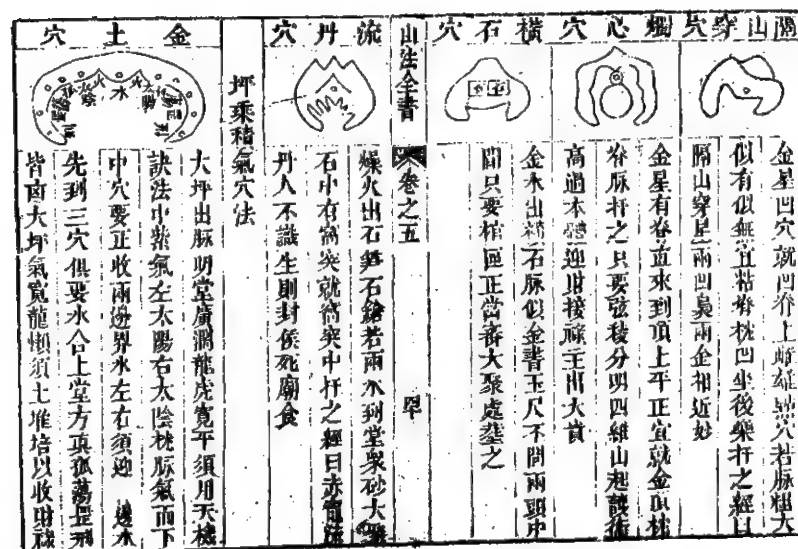 關山穿穴
金星凹穴就凹脊上雌雄點穴若脈粗大
似有似無宜粘脊枕凹坐後樂扦之經曰
隔山穿星兩凹裊兩金相近妙
爛心穴
金星有脊直來到頂上平正宜就金頂枕
脊脈扦之只要弦稜分明四維山起護衛
高過本體迎財接祿主出大貴
橫石穴
金水出石脈似金書玉尺不問兩頭中
間只要棺匡正當審大聚處塟之
山法全書
卷之五
流丹穴
燥火出石笋石鎗若兩水到堂衆砂大聚
石中有窩突就窩突中扦之經曰赤電流
丹人不識生則封侯死廟食
坪乘積氣穴法
金土穴
火
水
火
大坪出脈明堂廣濶龍虎寬平須用天機
訣法中紫氣左太陽右太陰枕脈氣而下
中穴要正收兩邊界水左右須迎 邊水
先到三穴俱要水合上堂方眞孤蕩是飛
皆因大坪氣寬龍懶須土堆培以收財祿